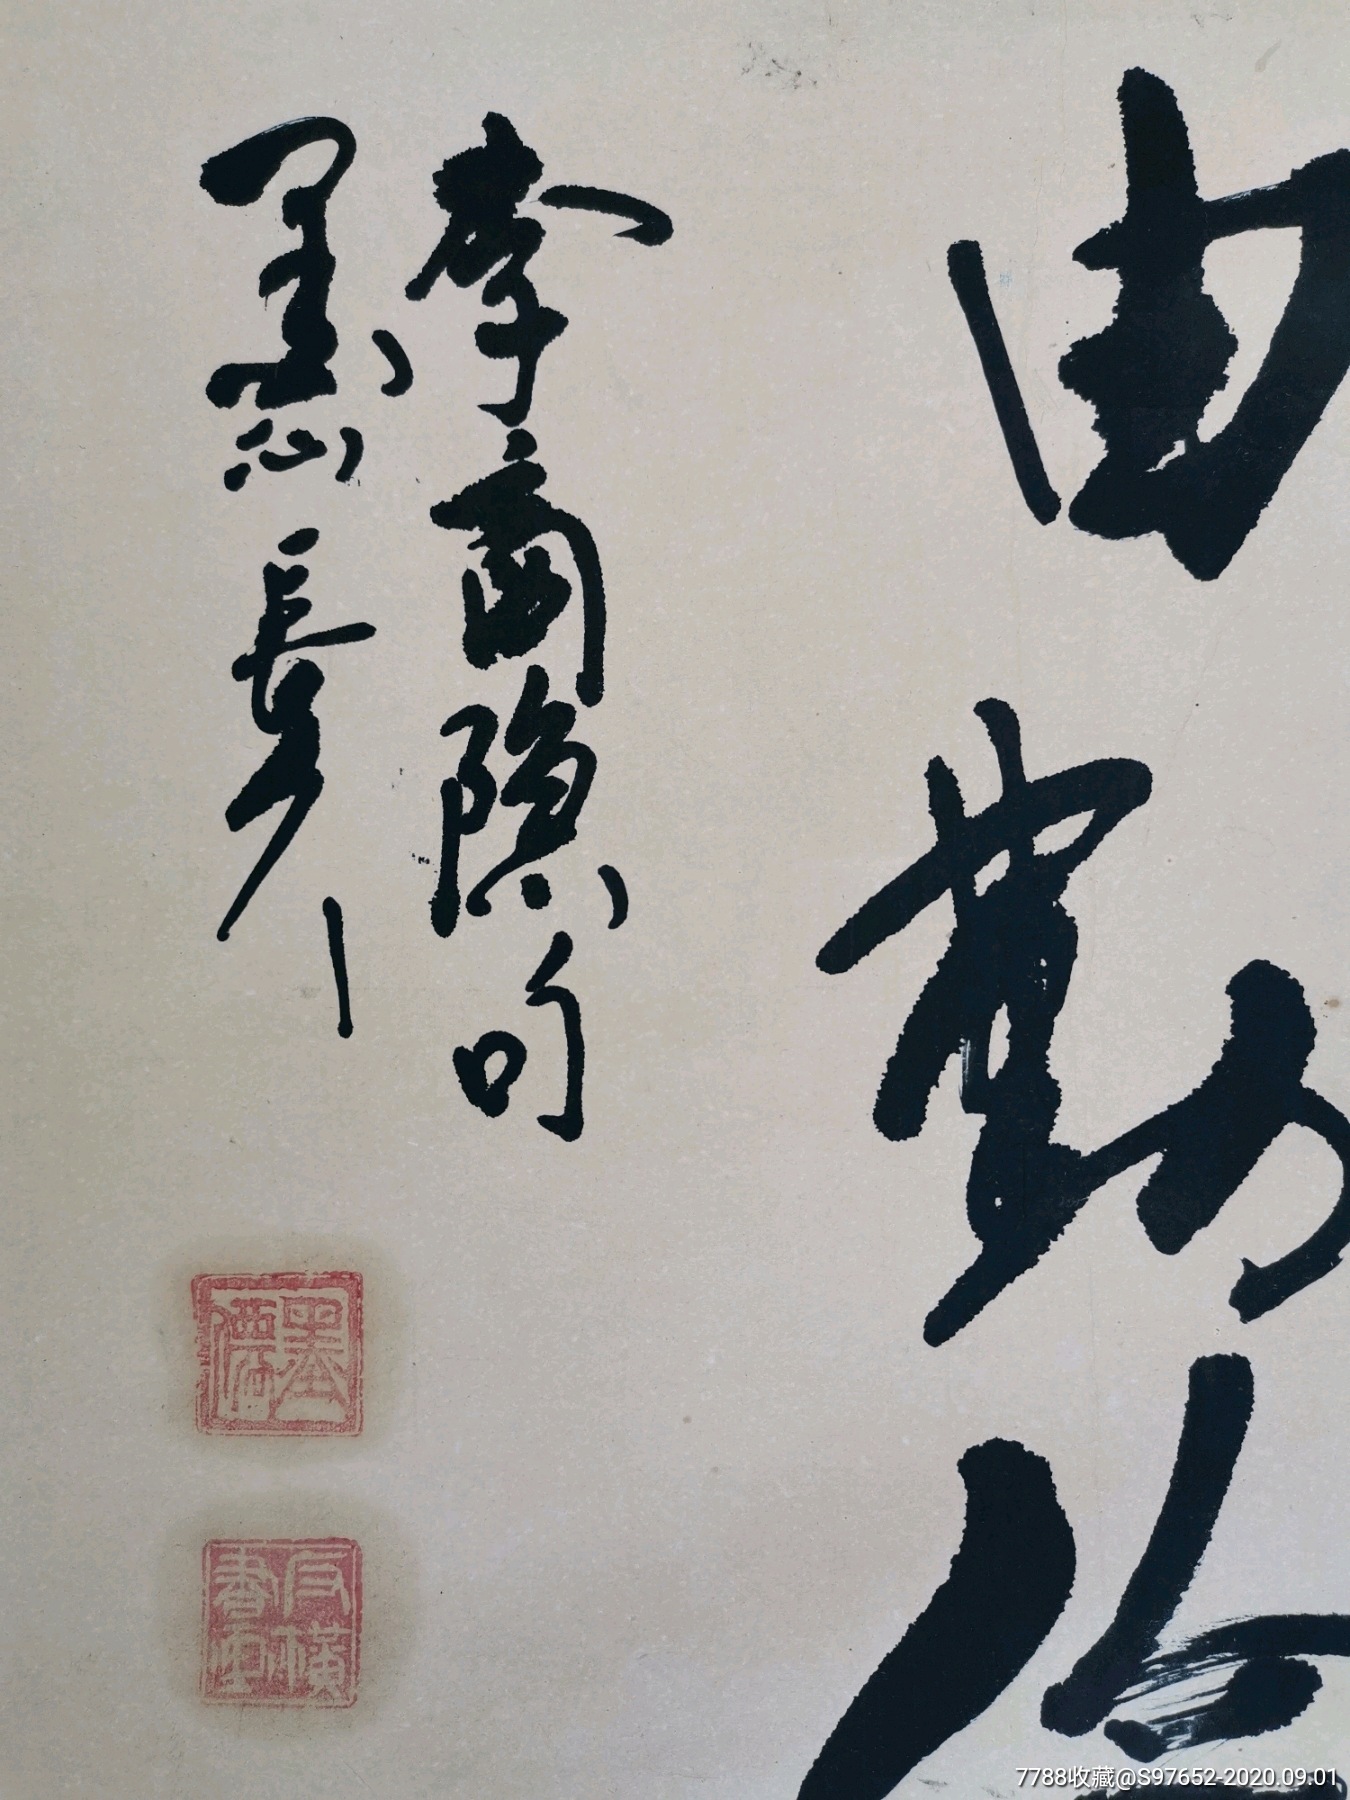 由勤俭
李商隐句
墨仙
墨僊
7788收藏@S97652-2020.09.01